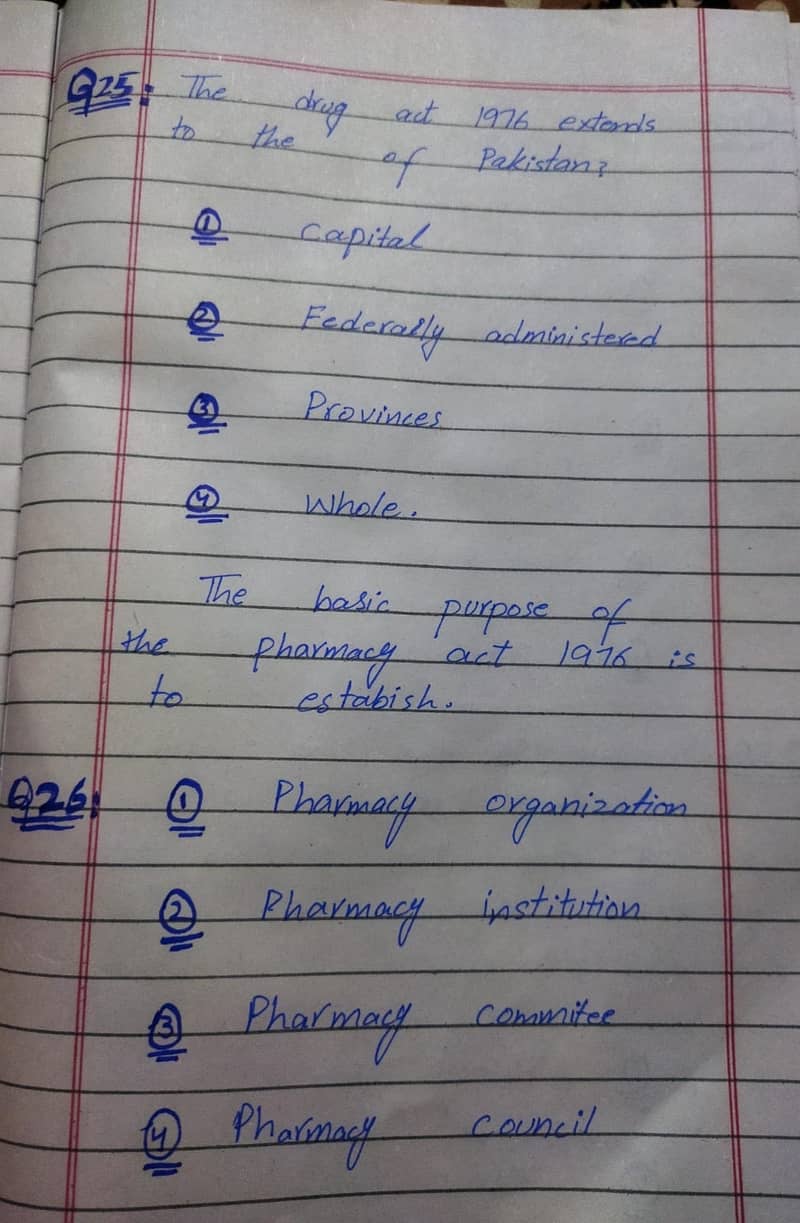 Q25: The drug act 1976 extends
to the of Pakistan?
① Capital
② Federally administered
③ Provinces
④ Whole.
The basic purpose of
the pharmacy act 1976 is
to estabish.
Q26: ① Pharmacy organization
② Pharmacy institution
③ Pharmacy commitee
④ Pharmacy council